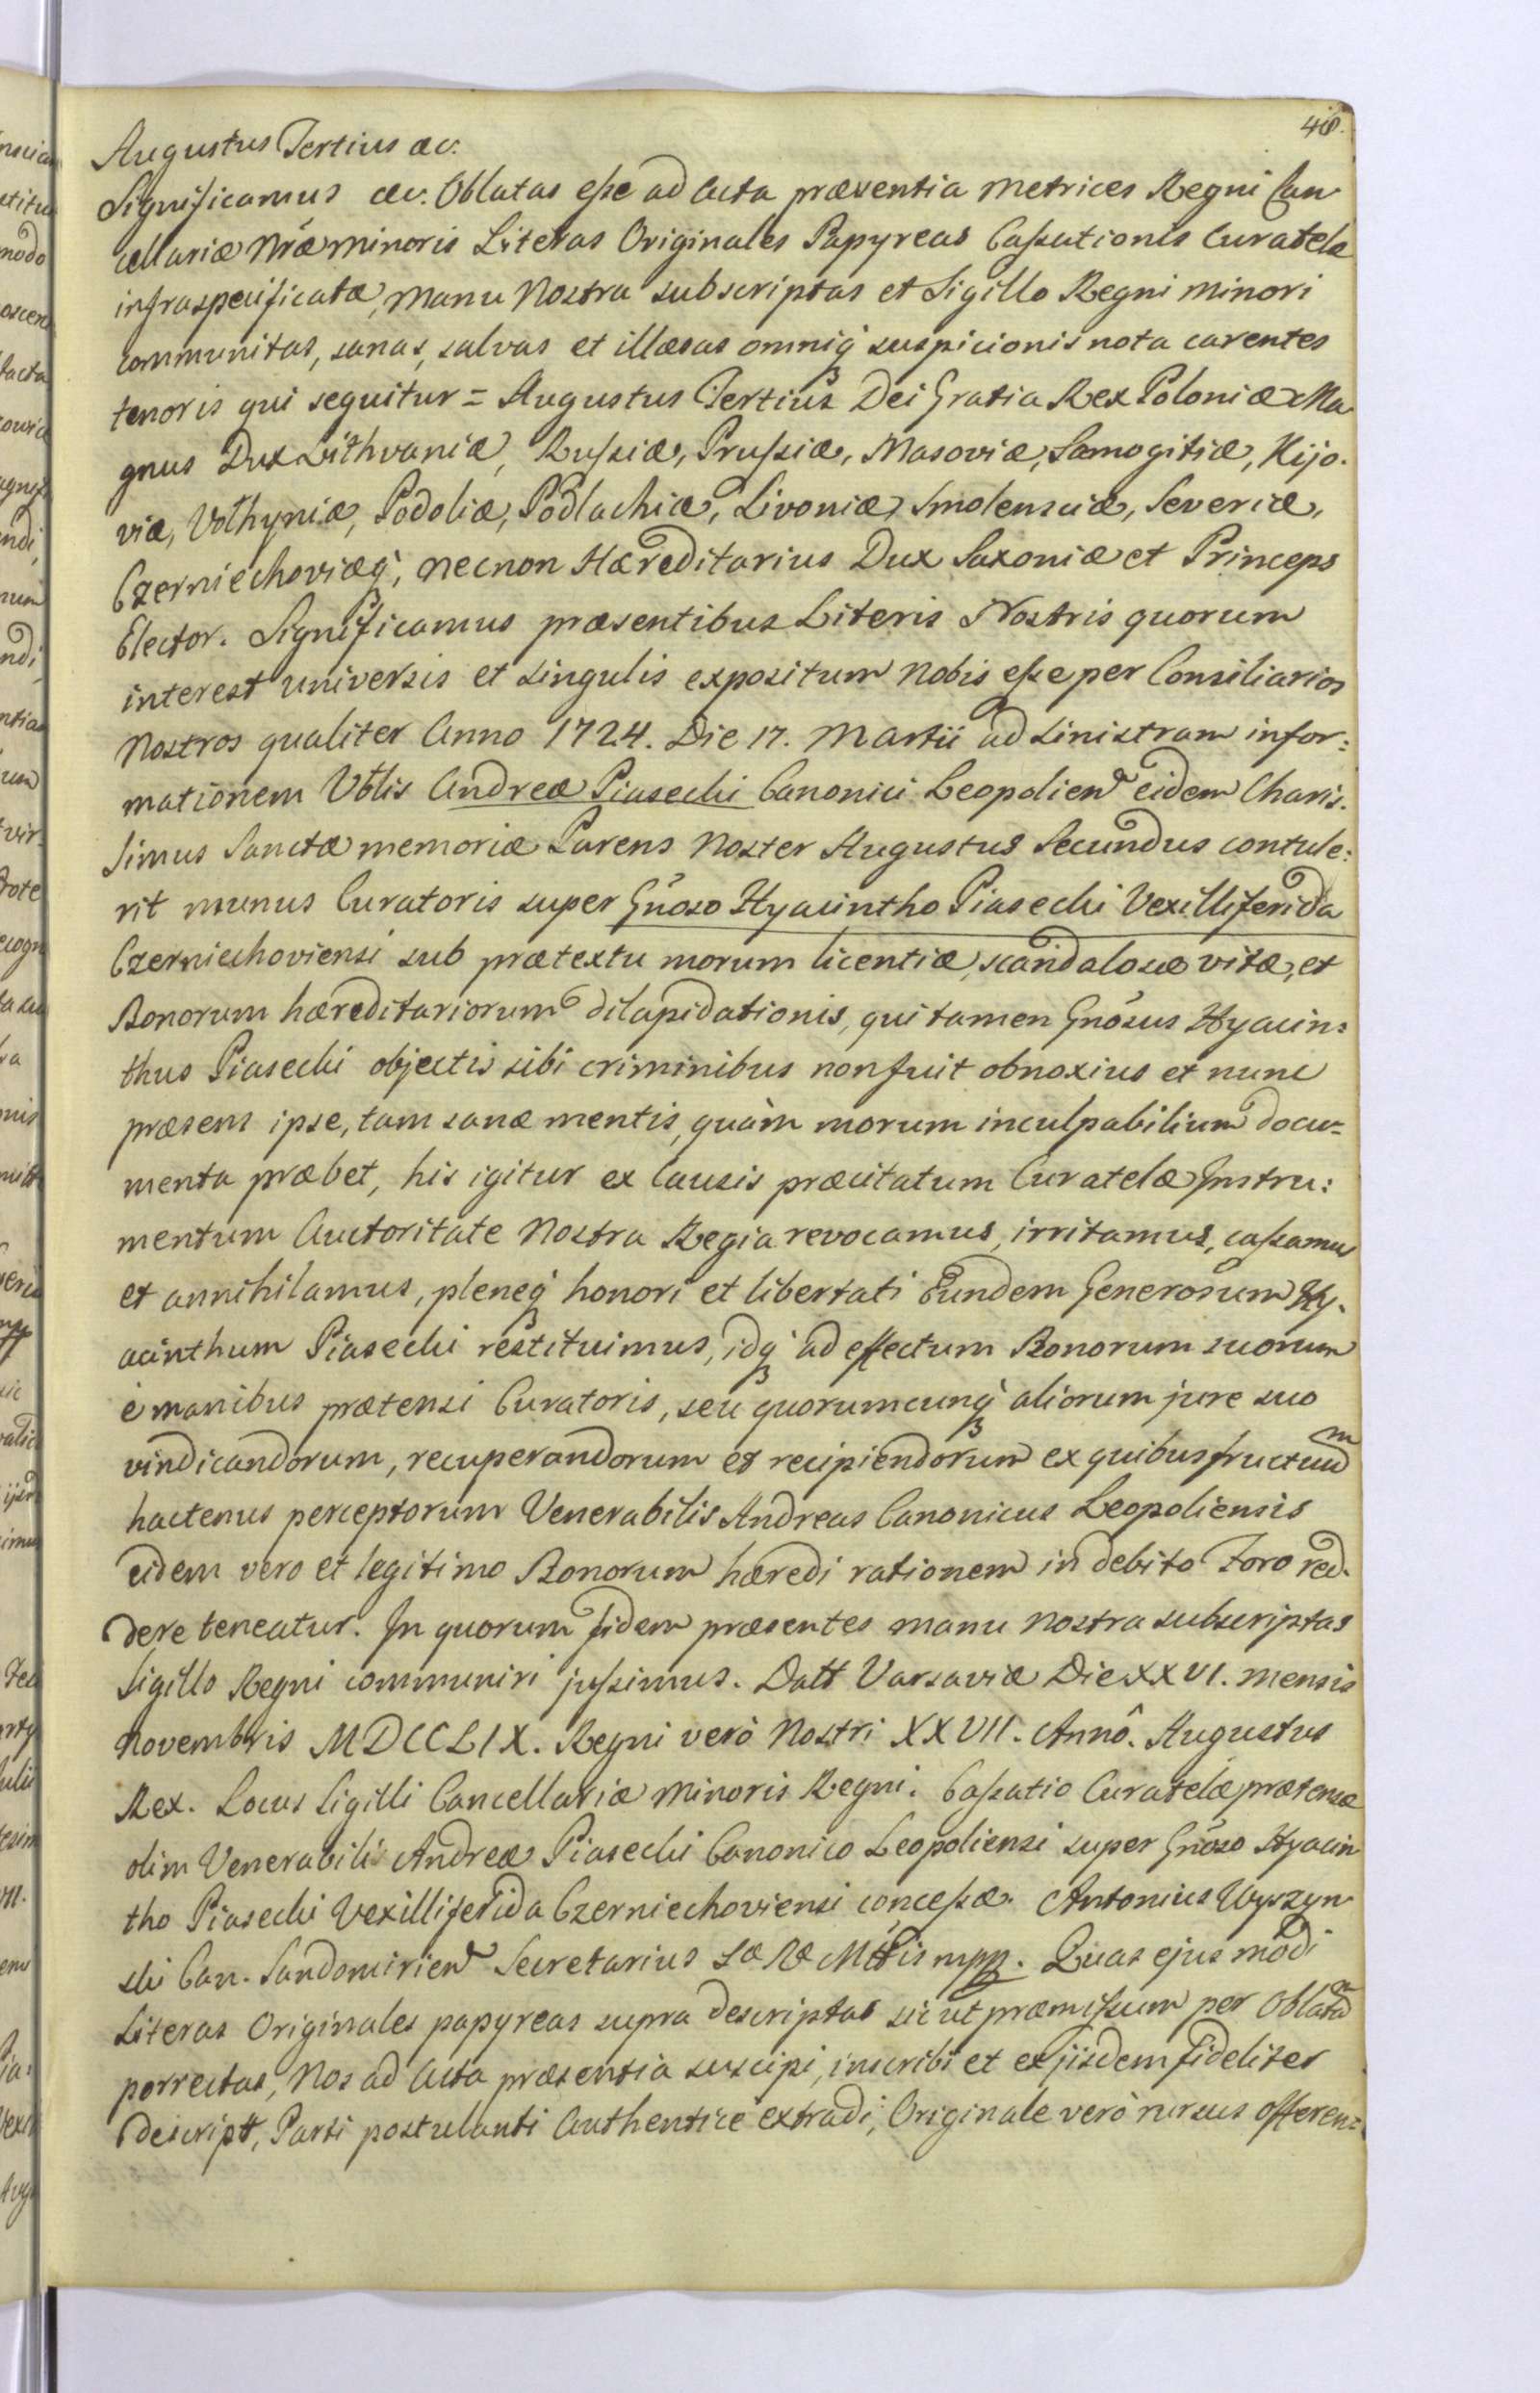 Augustus Tertius &c.
Significamus &c. Oblatas eße ad Acta præsentia Metrices Regni Can
cellariæ Nræ Minoris Literas Originales Papyreas Caßationis Curatelæ
infraspecificatæ, Manu Nostra subscriptas et Sigillo Regni minori
communitas, sanas, salvas et illæsas omniq suspicionis nota carentes
tenoris qui sequitur = Augustus Tertius Dei Gratia Rex Poloniæ Ma
gnus Dux Lithvaniæ, Rußiæ, Prußiæ, Masoviæ, Samogitiæ, Kijo.
viæ, Volhyniæ, Podoliæ, Podlachiæ, Livoniæ, Smolensciæ, Severiæ,
Czerniechoviæq, necnon Hæreditarius Dux Saxoniæ et Princeps
Elector. Significamus præsentibus Literis Nostris quorum
interest universis et singulis expositum Nobis eße per Consiliarios
Nostros qualiter Anno 1724. Die 17. Martii ad sinistram infor:
mationem Vblis Andreæ Piasecki Canonici Leopolien eidem Charis.
simus Sanctæ memoriæ Parens Noster Augustus Secundus contule:
rit munus Curatoris super Gnoso Hyacintho Piasecki Vexilliferida
Czerniechoviensi sub prætextu morum licentiæ, scandalosæ vitæ, et
Bonorum hæreditariorum dilapidationis, qui tamen Gnosus Hyacin:
thus Piasecki objectis sibi criminibus non fuit obnoxius et nunc
præsens ipse, tam sanæ mentis, quàm morum inculpabilium docu-
menta præbet, his igitur ex Causis præcitatum Curatelæ Instru:
mentum Auctoritate Nostra Regia revocamus, irritamus, caßamus
et annihilamus, pleneq honori et libertati Eundem Generosum Hy.
acinthum Piasecki restituimus, idq ad effectum Bonorum suorum
è manibus prætensi Curatoris, seu quorumcunq aliorum jure suo
vindicandorum, recuperandorum et recipiendorum ex quibus fructuum
hactenus perceptorum Venerabilis Andreas Canonicus Leopoliensis
eidem vero et legitimo Bonorum hæredi rationem in debito Foro red.
dere teneatur. In quorum fidem præsentes manu Nostra subscriptas
Sigillo Regni communiri jußimus. Datt Varsaviæ Die XXVI. mensis
Novembris MDCCLIX. Regni verò Nostri XXVII. Annô. Augustus
Rex. Locus Sigilli Cancellariæ Minoris Regni. Caßatio Curatelæ prætensæ
olim Venerabili Andreæ Piasecki Canonico Leopoliensi super Gnoso Hyacin
tho Piasecki Vexilliferida Czerniechoviensi conceßæ. Antonius Wyszyn
ski Can. Sandomirien Secretarius Sæ Ræ Mttis mpp. Quas ejus modi
Literas Originales papyreas supra descriptas sic ut præmißum per Oblatam
porrectas, Nos ad Acta præsentia suscipi, inscribi et ex jisdem fideliter
descript, Parti postulanti Authentice extradi, Originale verò rursus offeren: